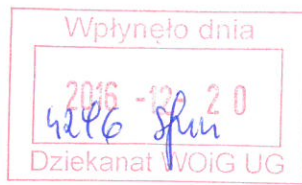 Wpłynęło dnia
2016 -12- 20
4296
Dziekanat WOiG UG